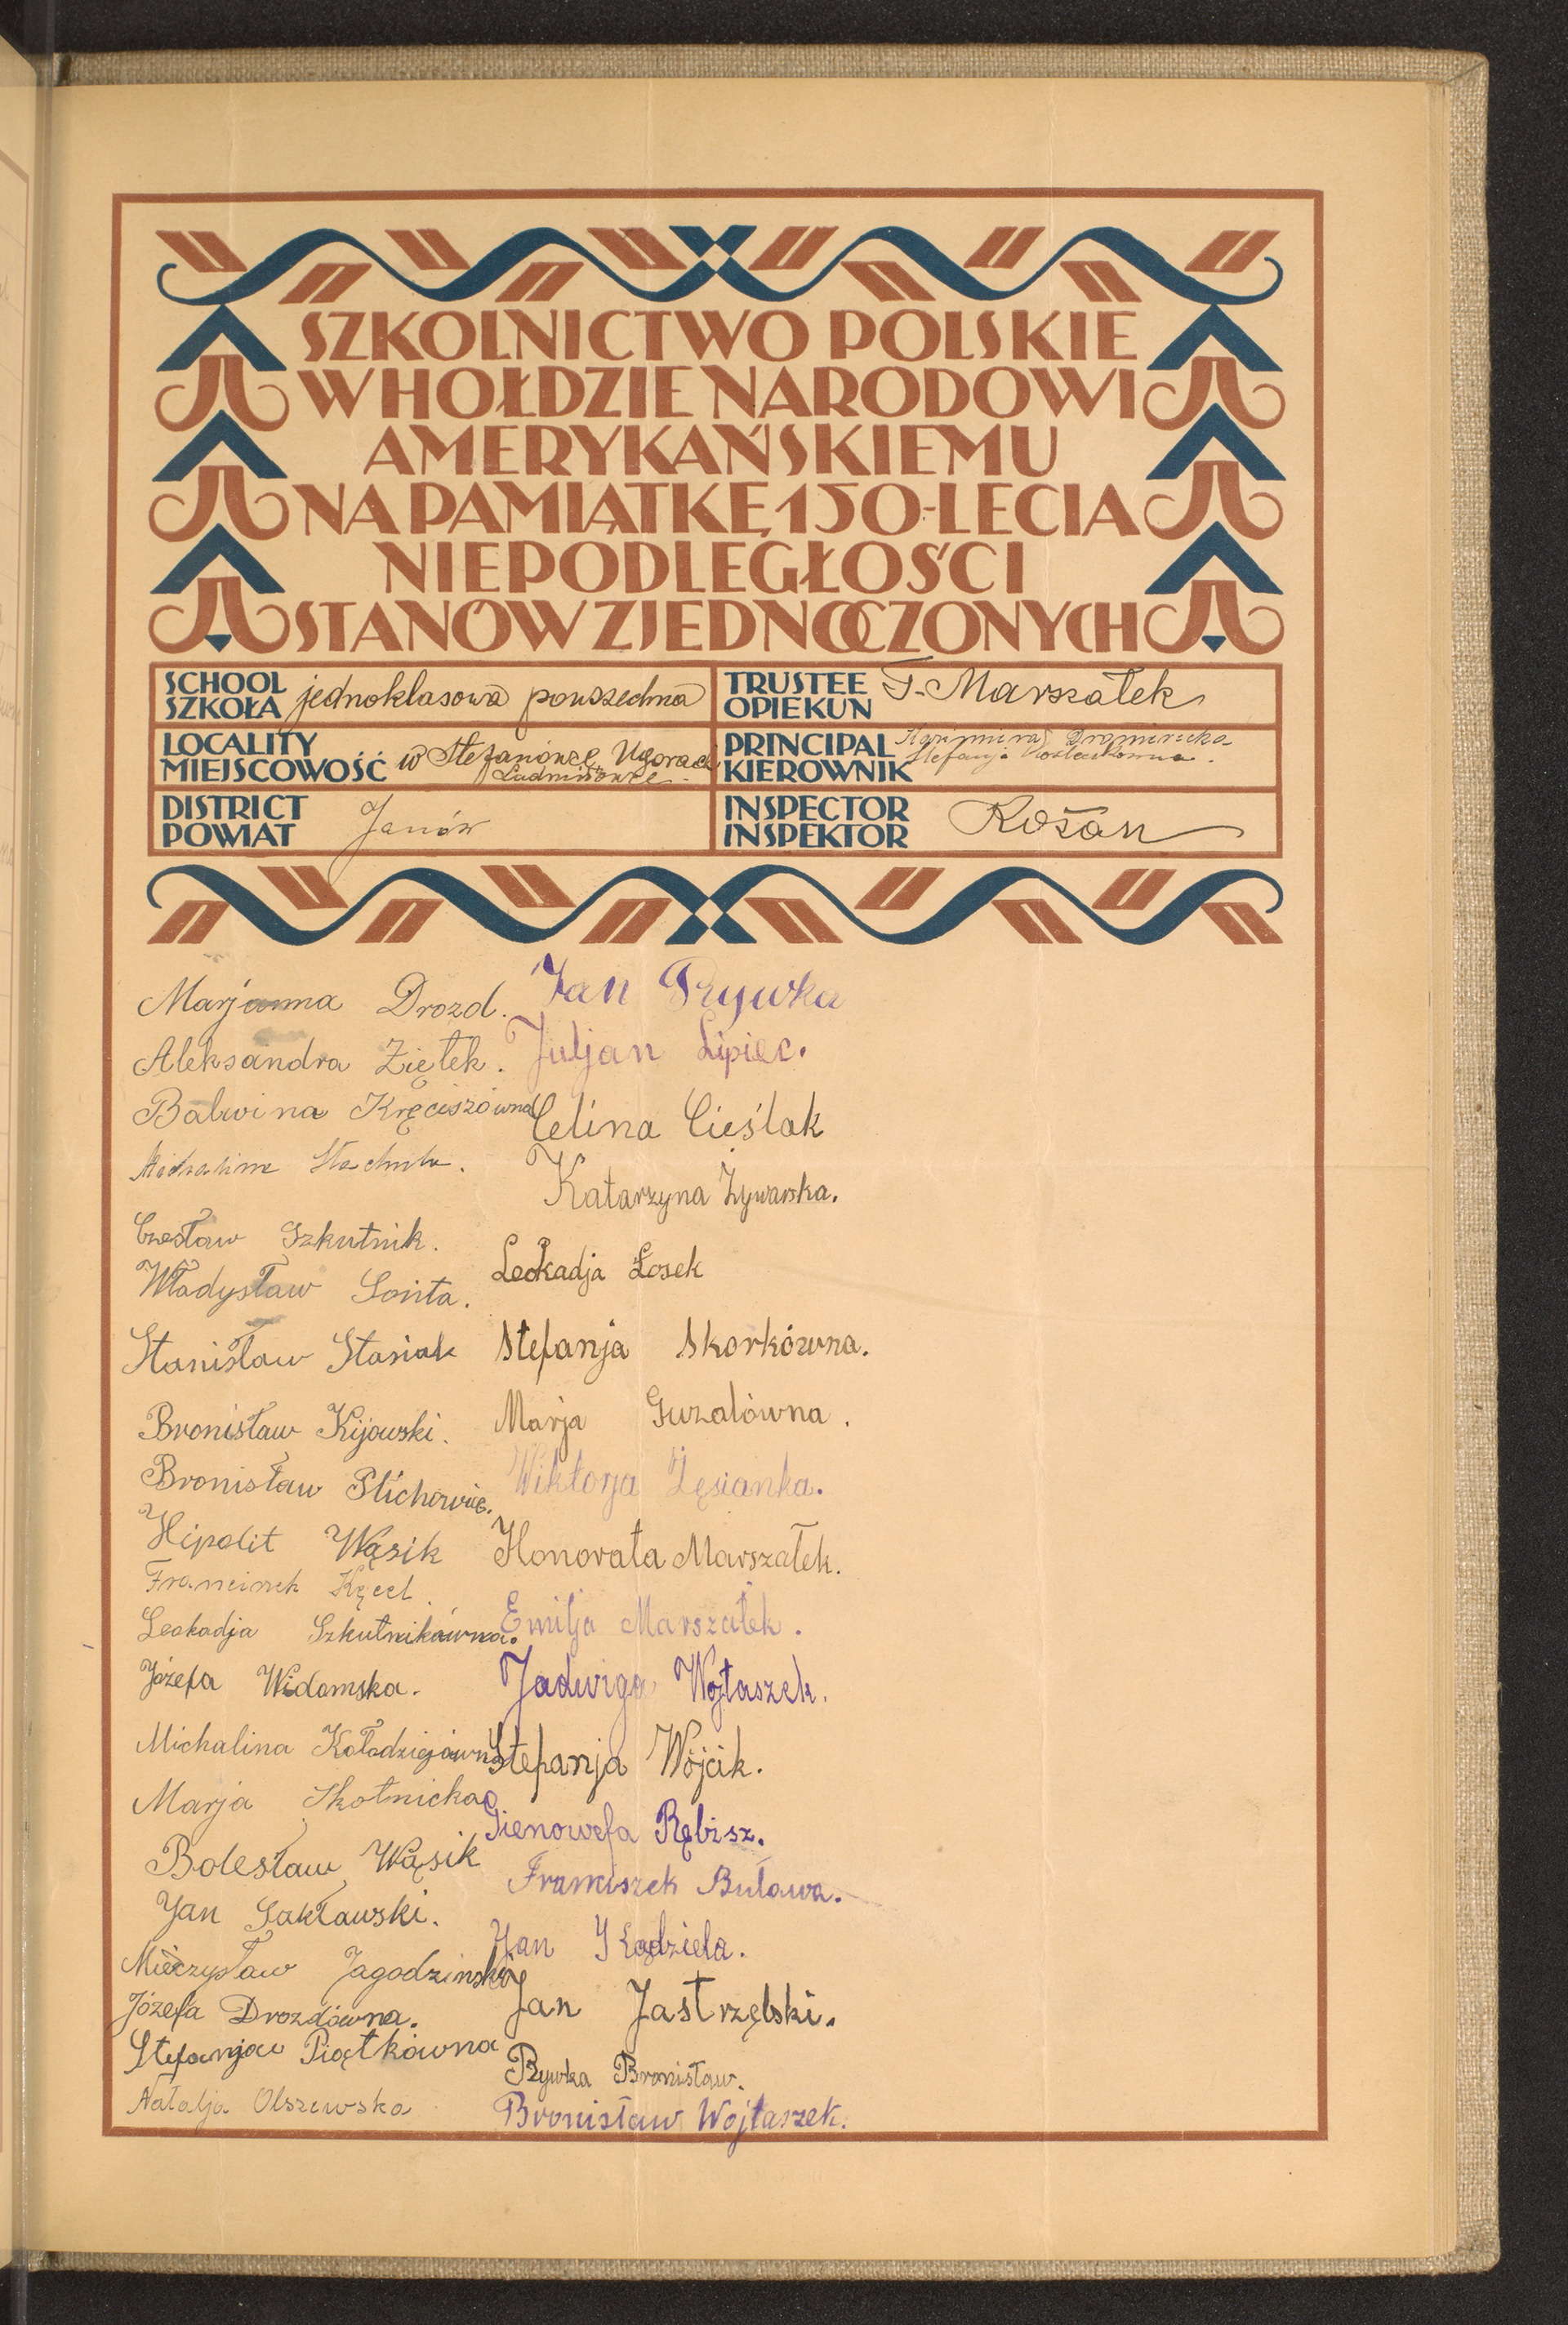 SZKOLNICTWO POLSKIE
W HOŁDZIE NARODOWI
AMERYKAŃSKIEMU
NA PAMIĄTKĘ 150-LECIA
NIEPODLEGŁOŚCI
STANÓW ZJEDNOCZONYCH
SCHOOL
SZKOŁA jednoklasowa powszechna
TRUSTEE
OPIEKUN F. Marszałek
LOCALITY
MIEJSCOWOŚĆ w Stefanówce, Ugorach
Ludmiłówce
PRINCIPAL Kazimiera
KIEROWNIK Stefanja
DISTRICT
POWIAT Janów
INSPECTOR
INSPEKTOR Rożan
Marjanna Drozd.
Aleksandra Ziętek.
Balwina Kręciszówna
Stachula.
Czesław Szkutnik.
Władysław Sonta.
Stanisław Stasiak
Bronisław Kijowski.
Bronisław
Hipolit Wąsik
Franciszek Kęcel.
Leokadja Szkutnikówna.
Józefa Widomska.
Michalina Kołodziejówna
Marja Skotnicka
Bolesław Wąsik
Jan Sakławski.
Mieczysław Jagodzinski
Józefa Drozdówna.
Stefanja Piątkówna
Natalja Olszewska
Jan Rywka
Juljan Lipiec.
Celina Cieślak
Katarzyna Żywarska.
Leokadja Łosek
Stefanja Skorkówna.
Marja Guzalówna.
Wiktorja Zęsianka.
Honorata Marszałek.
Emilja Marszałek.
Jadwiga Wojtaszek.
Stefanja Wójcik.
Gienowefa Rębisz.
Franciszek Buława.
Jan Kądziela.
Jan Jastrzębski.
Rywka Bronisław.
Bronisław Wojtaszek.